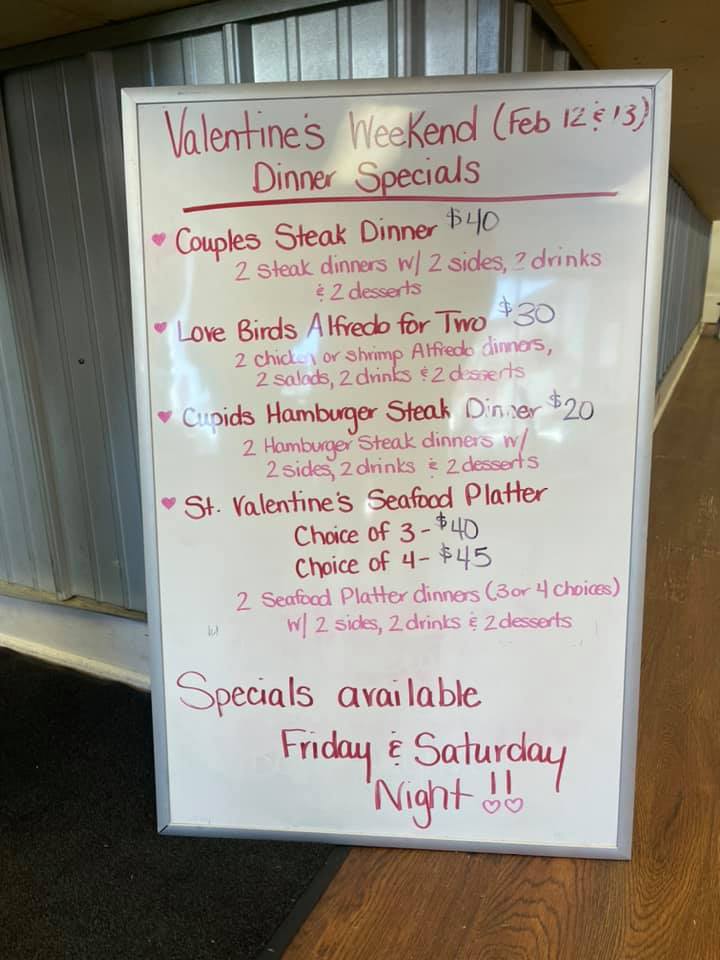 Valentine's Weekend (Feb 12 & 13)
Dinner Specials
Couples Steak Dinner $40
2 steak dinners w/ 2 sides, 2 drinks
& 2 desserts
Love Birds Alfredo for Two $30
2 chicken or shrimp Alfredo dinners,
2 salads, 2 drinks & 2 desserts
Cupids Hamburger Steak Dinner $20
2 Hamburger Steak dinners w/
2 sides, 2 drinks & 2 desserts
St. Valentine's Seafood Platter
Choice of 3 - $40
Choice of 4 - $45
2 Seafood Platter dinners (3 or 4 choices)
w/ 2 sides, 2 drinks & 2 desserts
Specials available
Friday & Saturday
Night !!